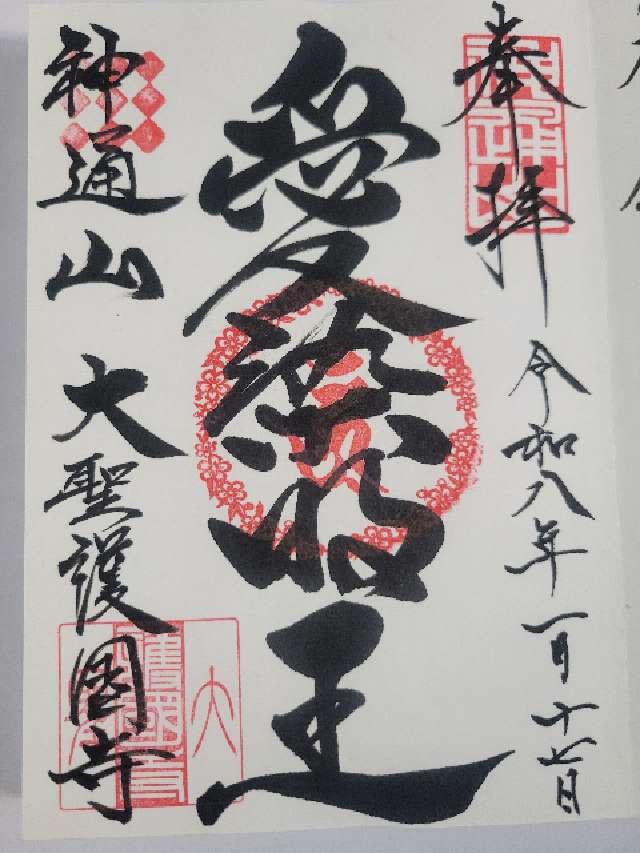 奉拝
令和八年一月十七日
愛染明王
神通山 大聖護國寺